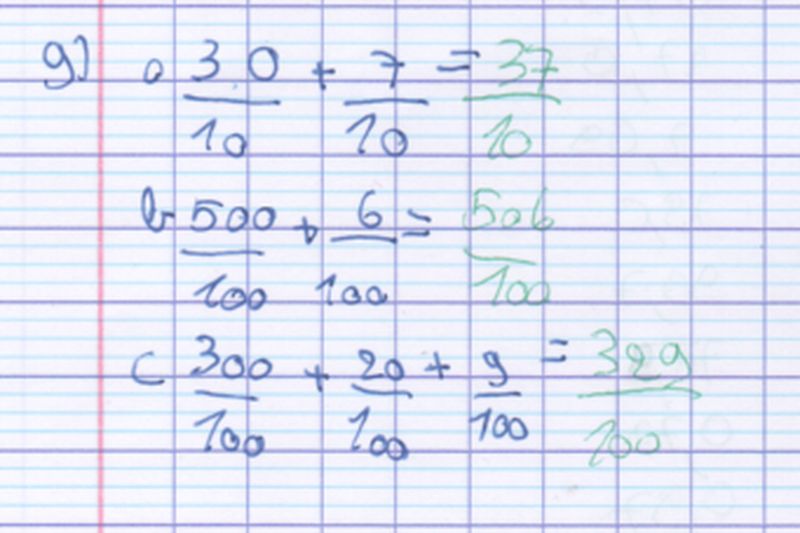 g) a 30/10 + 7/10 = 37/10
b 500/100 + 6/100 = 506/100
c 300/100 + 20/100 + 9/100 = 329/100